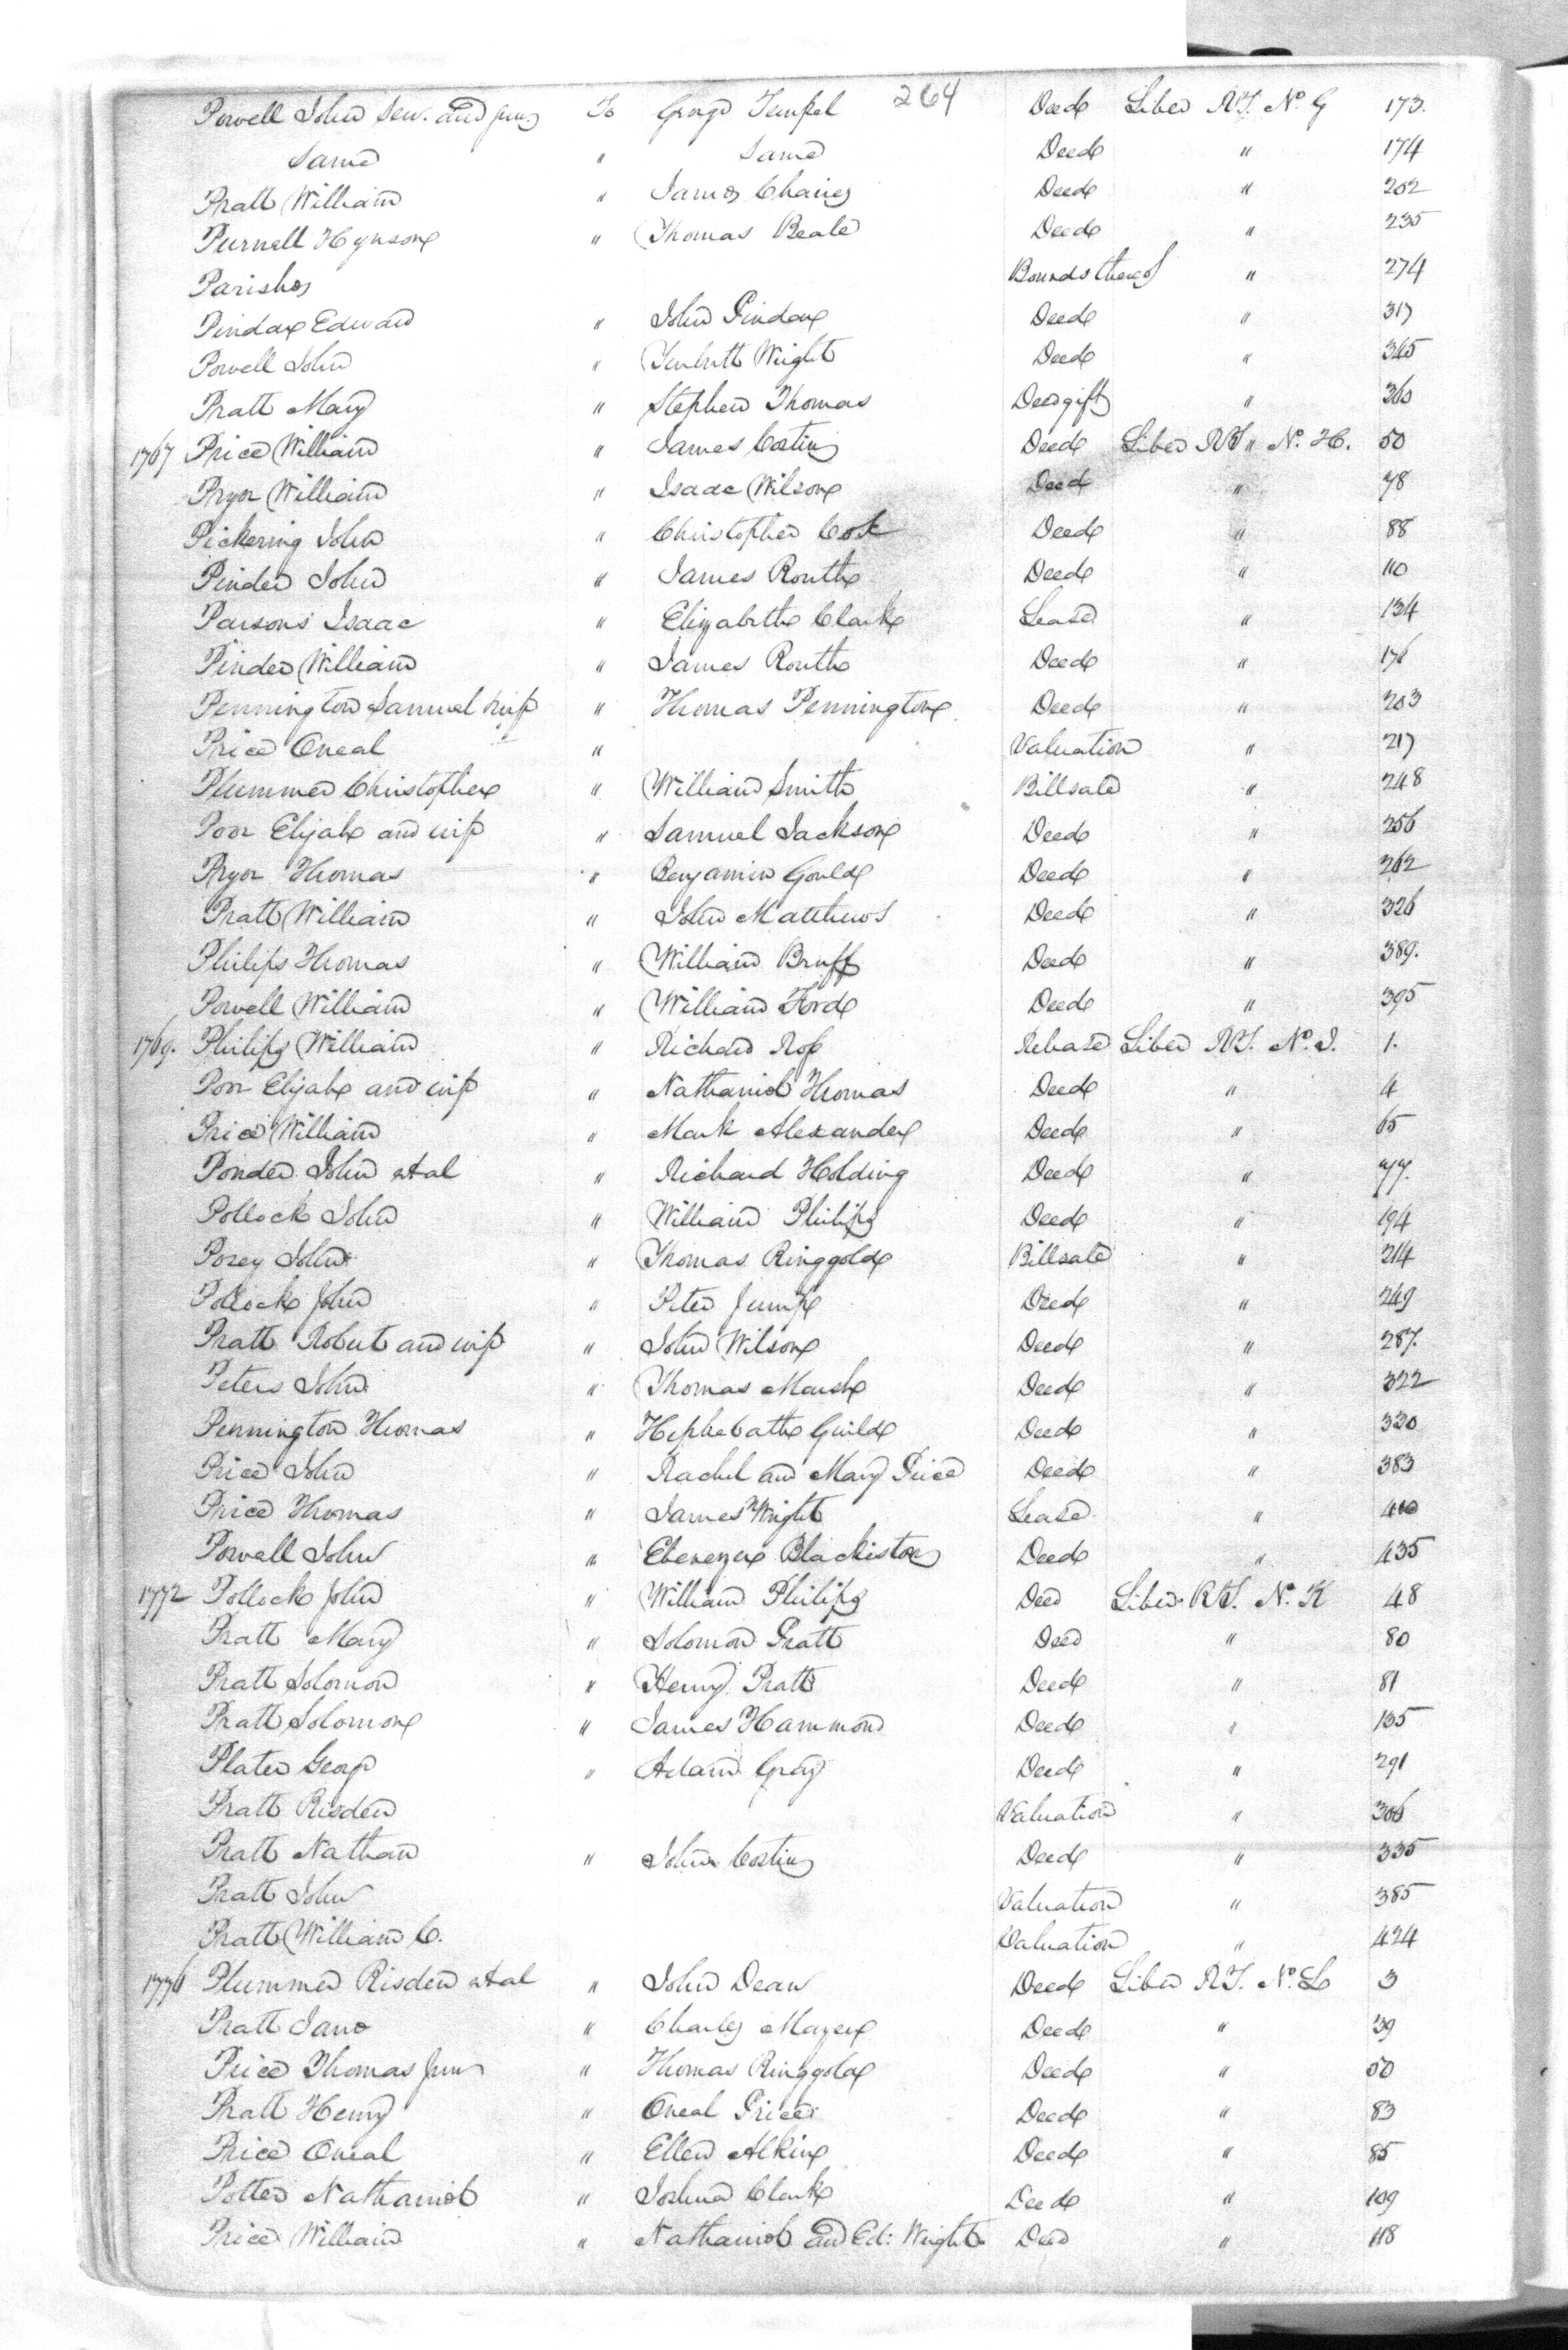 264
Powell John Sen. and Jun. To George Tempel Deed Liber RT. No. G 173.
Same " Same Deed " 174
Pratt William " James Chaires Deed " 202
Purnell Hynson " Thomas Beale Deed " 235
Parishes Bounds thereof " 274
Pindar Edward " John Pindar Deed " 317
Powell John " Turbutt Wright Deed " 345
Pratt Mary " Stephen Thomas Deed gift " 360
1767 Price William " James Costin Deed Liber RT " No. H. 50
Pryor William " Isaac Wilson Deed " 78
Pickering John " Christopher Cox Deed " 88
Pinder John " James Routh Deed " 110
Parsons Isaac " Elizabeth Clark Lease " 134
Pinder William " James Routh Deed " 176
Pennington Samuel & wife " Thomas Pennington Deed " 203
Price Oneal " Valuation " 217
Plummer Christopher " William Smith Billsale " 248
Poor Elijah and wife " Samuel Jackson Deed " 256
Pryor Thomas " Benjamin Gould Deed " 262
Pratt William " John Matthews Deed " 326
Philips Thomas " William Bruff Deed " 389.
Powell William " William Ford Deed " 395
1769. Philips William " Richard Ross Release Liber RT. No. I. 1.
Poor Elijah and wife " Nathaniel Thomas Deed " 4
Price William " Mark Alexander Deed " 65
Ponder John et al " Richard Holding Deed " 77.
Pollock John " William Philips Deed " 194
Pozey John " Thomas Ringgold Billsale " 214
Pollock John " Peter Jump Deed " 249
Pratt Robert and wife " John Wilson Deed " 287.
Peters John " Thomas Marsh Deed " 322
Pennington Thomas " Hephebath Guild Deed " 330
Price John " Rachel and Mary Price Deed " 383
Price Thomas " James Wright Lease "
Powell John " Ebenezer Blackiston Deed " 435
1772 Pollock John " William Philips Deed Liber RT. No. K 48
Pratt Mary " Solomon Pratt Deed " 80
Pratt Solomon " Henry Pratt Deed " 81
Pratt Solomon " James Hammond Deed " 135
Plater George " Adam Gray Deed " 291
Pratt Risden Valuation " 306
Pratt Nathan " John Costin Deed " 335
Pratt John Valuation " 385
Pratt William C. Valuation " 424
1776 Plummer Risden et al " John Dean Deed Liber RT. No. L 3
Pratt Jane " Charles Mayer Deed " 39
Price Thomas Jun " Thomas Ringgold Deed " 50
Pratt Henry " Oneal Price Deed " 83
Price Oneal " Ellen Alkin Deed " 85
Potter Nathaniel " Joshua Clark Deed " 109
Price William " Nathaniel and Ed: Wright Deed " 118